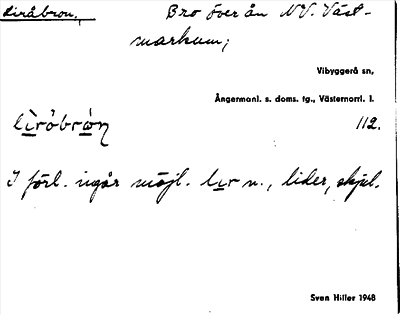 Liråbron, Bro över ån NV. Väst-
markum;
Vibyggerå sn,
Ångermanl. s. doms. tg., Västernorrl. l.
lìròbrón 112.
I förl. ingår möjl. lir n., lider, skjul.
Sven Hiller 1948